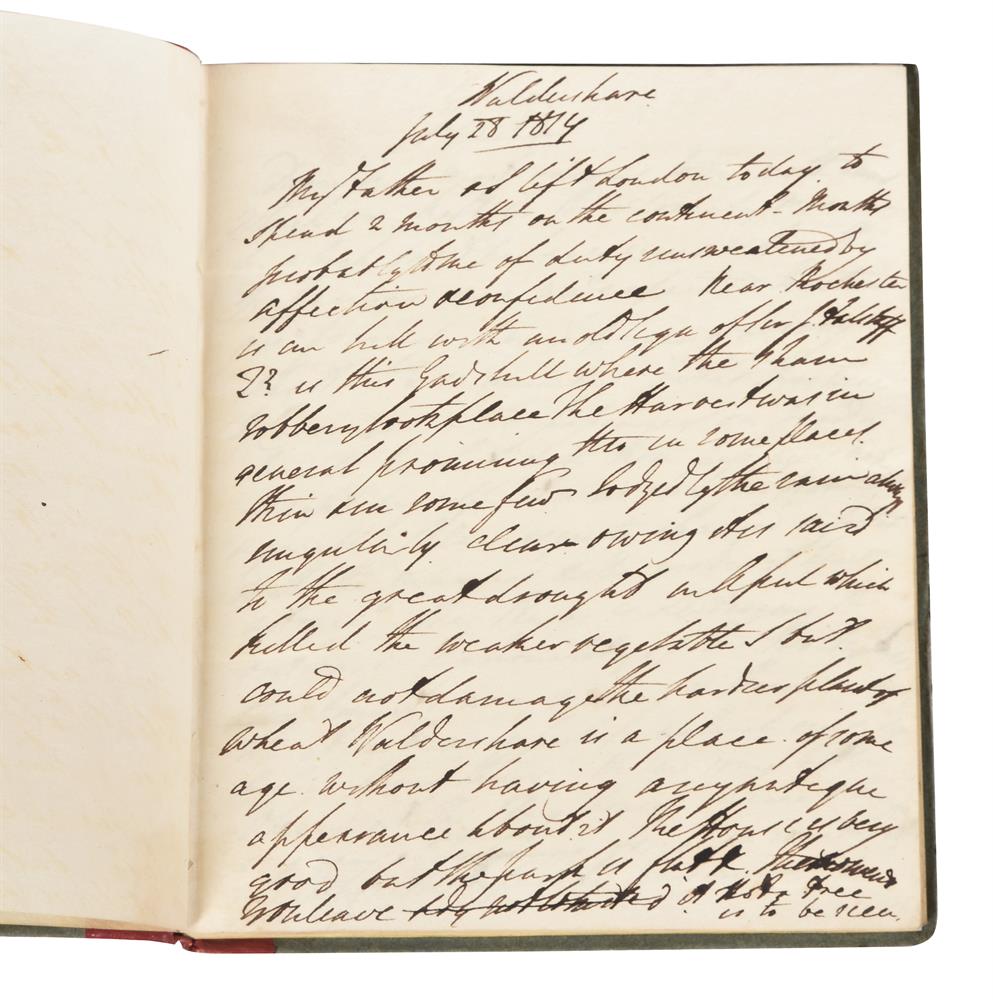 Waldershare
July 28 1814
My Father & I left London today to
spend 2 months on the continent - Months
probably to me of duty unsweetened by
affection & confidence Near Rochester
is an hill with an old sign of Sir J. Falstaff
is this Gadshill where the sham
robbery took place The Harvest was in
general promising tho in some places
thin & in some few lodged by the rain
singularly clear owing it is said
to the great drought in April which
killed the weaker vegetables but
could not damage the hardier plant of
wheat Waldershare is a place of some
age without having any antique
appearance about it The House is very
good but the park is flat & The moment
you leave it not a tree
is to be seen.